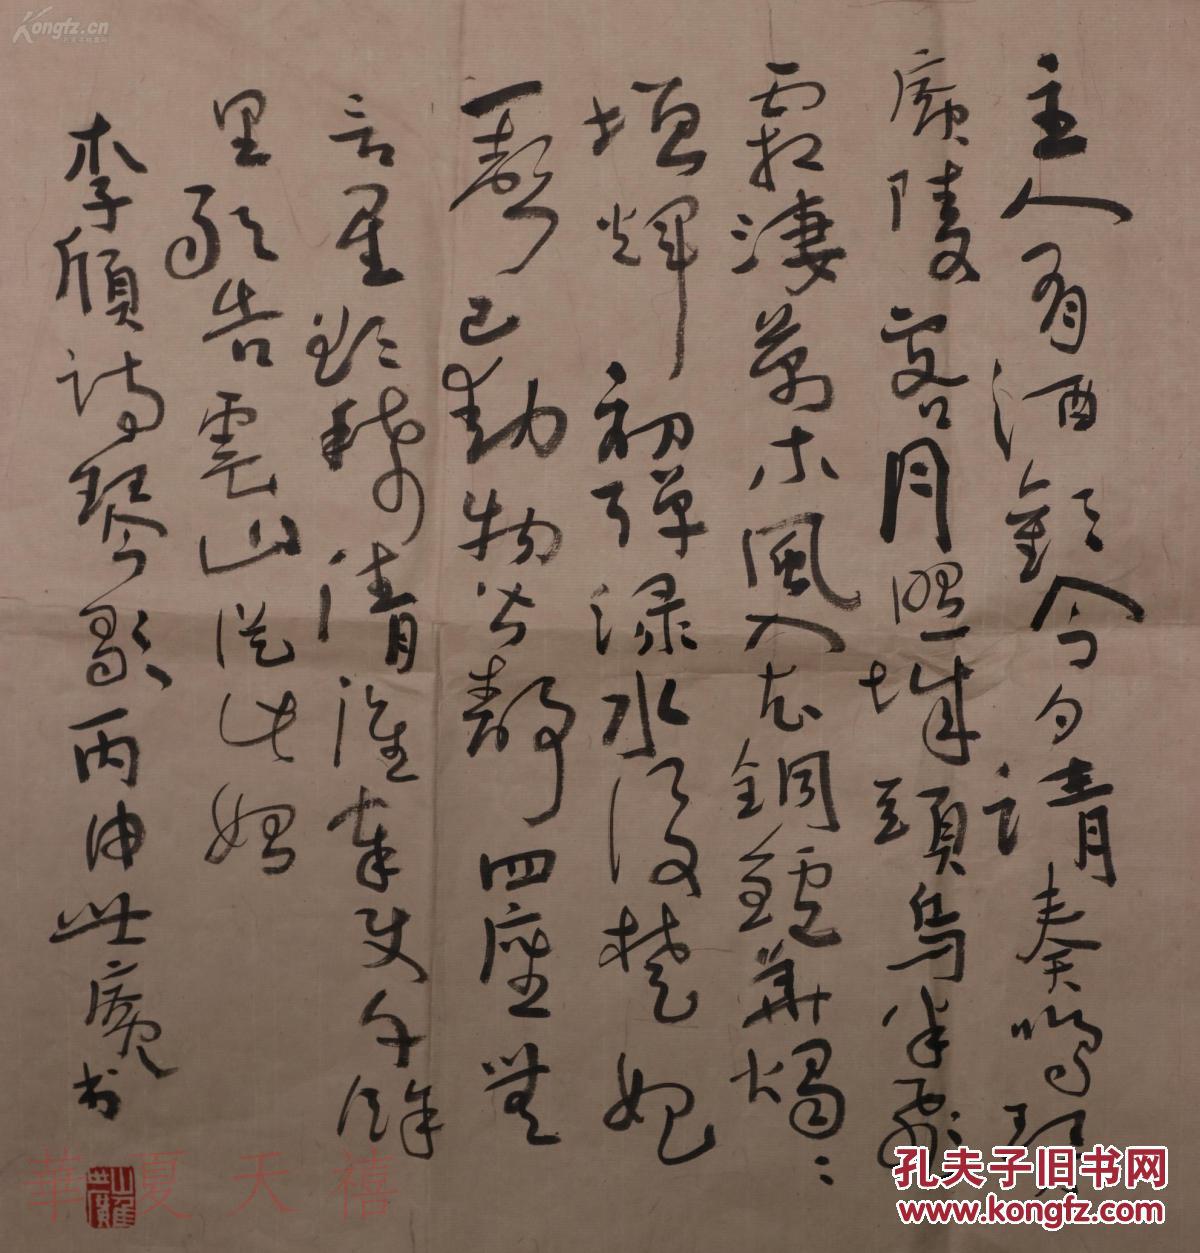 Kongfz.cn
主人有酒歡今夕請奏鳴琴
廣陵客月照城頭烏半飛
霜淒萬木風入衣銅鑪華燭〻
增輝初弹渌水後楚妃
一聲已動物皆靜四座無
言星欲稀清淮奉使千餘
里敢告雲山從此始
李頎詩琴歌丙申世廣书
華夏天禧
孔夫子旧书网
www.kongfz.com